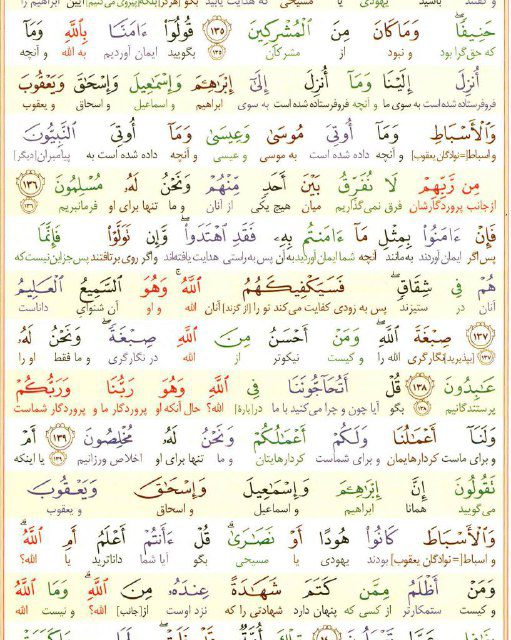 و گفتند باشید یهودی یا مسیحی که هدایت یابید بگو
حَنِيفًا ۖ وَمَا كَانَ مِنَ الْمُشْرِكِينَ ﴿١٣٥﴾ قُولُوٓا۟ ءَامَنَّا بِٱللَّهِ وَمَآ
که حق‌گرا بود و نبود از مشرکان بگویید ایمان آوردیم به الله و آنچه
أُنزِلَ إِلَيْنَا وَمَآ أُنزِلَ إِلَىٰٓ إِبْرَٰهِـۧمَ وَإِسْمَٰعِيلَ وَإِسْحَٰقَ وَيَعْقُوبَ
فروفرستاده شده است به سوی ما و آنچه فروفرستاده شده است به سوی ابراهیم و اسماعیل و اسحاق و یعقوب
وَٱلْأَسْبَاطِ وَمَآ أُوتِىَ مُوسَىٰ وَعِيسَىٰ وَمَآ أُوتِىَ ٱلنَّبِيُّونَ
و اسباط[=نوادگان یعقوب] و آنچه داده شده است به موسی و عیسی و آنچه داده شده است به پیامبران[دیگر]
مِن رَّبِّهِمْ لَا نُفَرِّقُ بَيْنَ أَحَدٍ مِّنْهُمْ وَنَحْنُ لَهُۥ مُسْلِمُونَ ﴿١٣٦﴾
ازجانب پروردگارشان فرق نمی‌گذاریم میان هیچ یکی از آنان و ما تنها برای او فرمانبریم
فَإِنْ ءَامَنُوا۟ بِمِثْلِ مَآ ءَامَنتُم بِهِۦ فَقَدِ ٱهْتَدَوا۟ ۖ وَّإِن تَوَلَّوْا۟ فَإِنَّمَا
پس اگر ایمان آوردند به مانند آنچه شما ایمان آوردید به آن پس به راستی هدایت یافته‌اند و اگر روی برتافتند پس جز این نیست که
هُمْ فِى شِقَاقٍ ۖ فَسَيَكْفِيكَهُمُ ٱللَّهُ ۚ وَهُوَ ٱلسَّمِيعُ ٱلْعَلِيمُ
آنان در ستیزند پس به زودی کفایت می‌کند تو را [از گزند] آنان الله و او آن شنوای داناست
﴿١٣٧﴾ صِبْغَةَ ٱللَّهِ ۖ وَمَنْ أَحْسَنُ مِنَ ٱللَّهِ صِبْغَةً ۖ وَنَحْنُ لَهُۥ
[بپذیرید] نگارگری الله را و کیست نیکوتر از الله در نگارگری و ما فقط او را
عَٰبِدُونَ ﴿١٣٨﴾ قُلْ أَتُحَآجُّونَنَا فِى ٱللَّهِ وَهُوَ رَبُّنَا وَرَبُّكُمْ
پرستندگانیم بگو آیا چون و چرا می‌کنید با ما در[بارهٔ] الله؟ حال آنکه او پروردگار ما و پروردگار شماست
وَلَنَآ أَعْمَٰلُنَا وَلَكُمْ أَعْمَٰلُكُمْ وَنَحْنُ لَهُۥ مُخْلِصُونَ ﴿١٣٩﴾ أَمْ
و برای ماست کردارهایمان و برای شماست کردارهایتان و ما تنها برای او اخلاص ورزانیم یا اینکه
تَقُولُونَ إِنَّ إِبْرَٰهِـۧمَ وَإِسْمَٰعِيلَ وَإِسْحَٰقَ وَيَعْقُوبَ
می‌گویید همانا ابراهیم و اسماعیل و اسحاق و یعقوب
وَٱلْأَسْبَاطَ كَانُوا۟ هُودًا أَوْ نَصَٰرَىٰ ۗ قُلْ ءَأَنتُمْ أَعْلَمُ أَمِ ٱللَّهُ ۗ
و اسباط[=نوادگان یعقوب] بودند یهودی یا مسیحی بگو آیا شما داناترید یا الله؟
وَمَنْ أَظْلَمُ مِمَّن كَتَمَ شَهَٰدَةً عِندَهُۥ مِنَ ٱللَّهِ ۗ وَمَا ٱللَّهُ
و کیست ستمکارتر از کسی که پنهان دارد شهادتی را که نزد اوست از[جانب] الله؟ و نیست الله